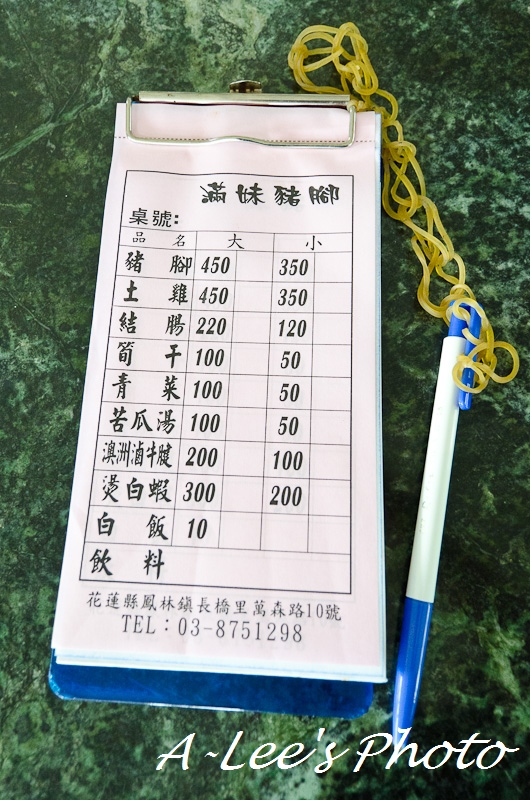 滿妹豬腳
桌號:
品名 大 小
豬腳 450 350
土雞 450 350
結腸 220 120
筍干 100 50
青菜 100 50
苦瓜湯 100 50
澳洲滷牛腱 200 100
燙白蝦 300 200
白飯 10
飲料
花蓮縣鳳林鎮長橋里萬森路10號
TEL：03-8751298
A~Lee's Photo